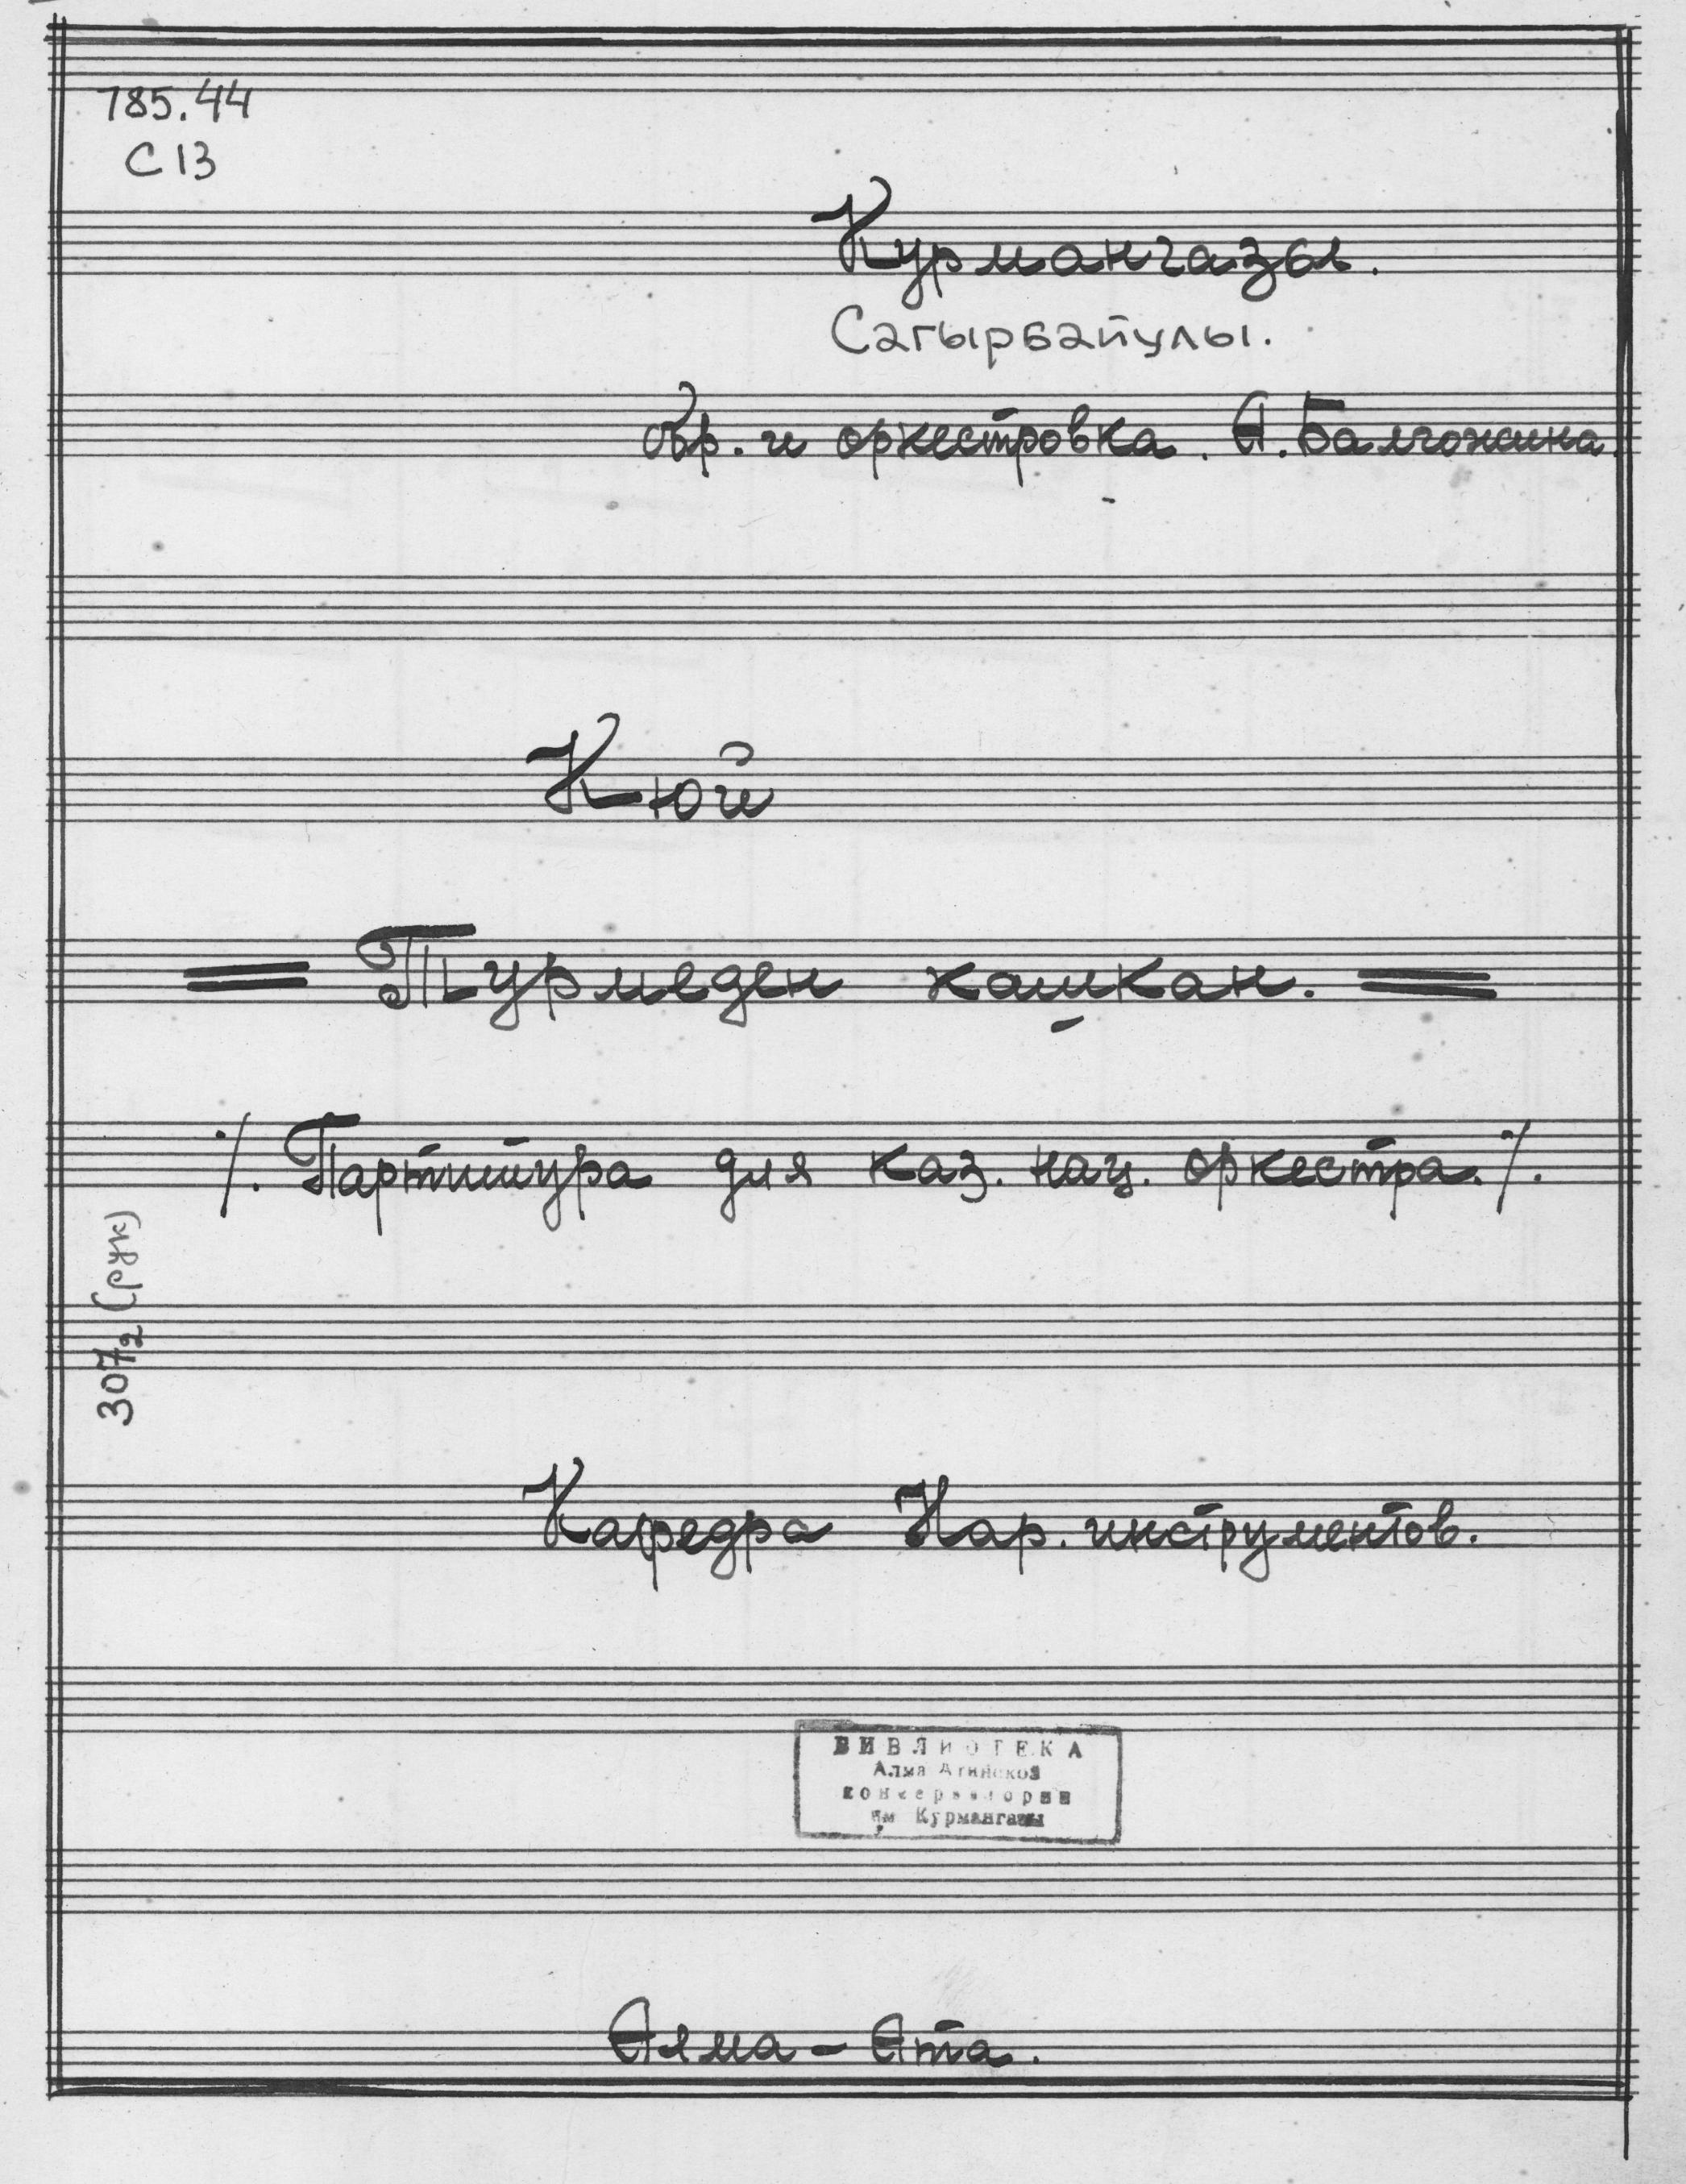 785.44
С 13
Курмангазы.
Сагырбайулы.
обр. и оркестровка. А. Балгожина.
Кюй
Турмеден кашкан.
/. Партитура для каз. нац. оркестра. /.
307₂ (рук)
Кафедра Нар. инструментов.
БИБЛИОТЕКА
Алма Атинской
консерватории
им Курмангазы
Алма-Ата.